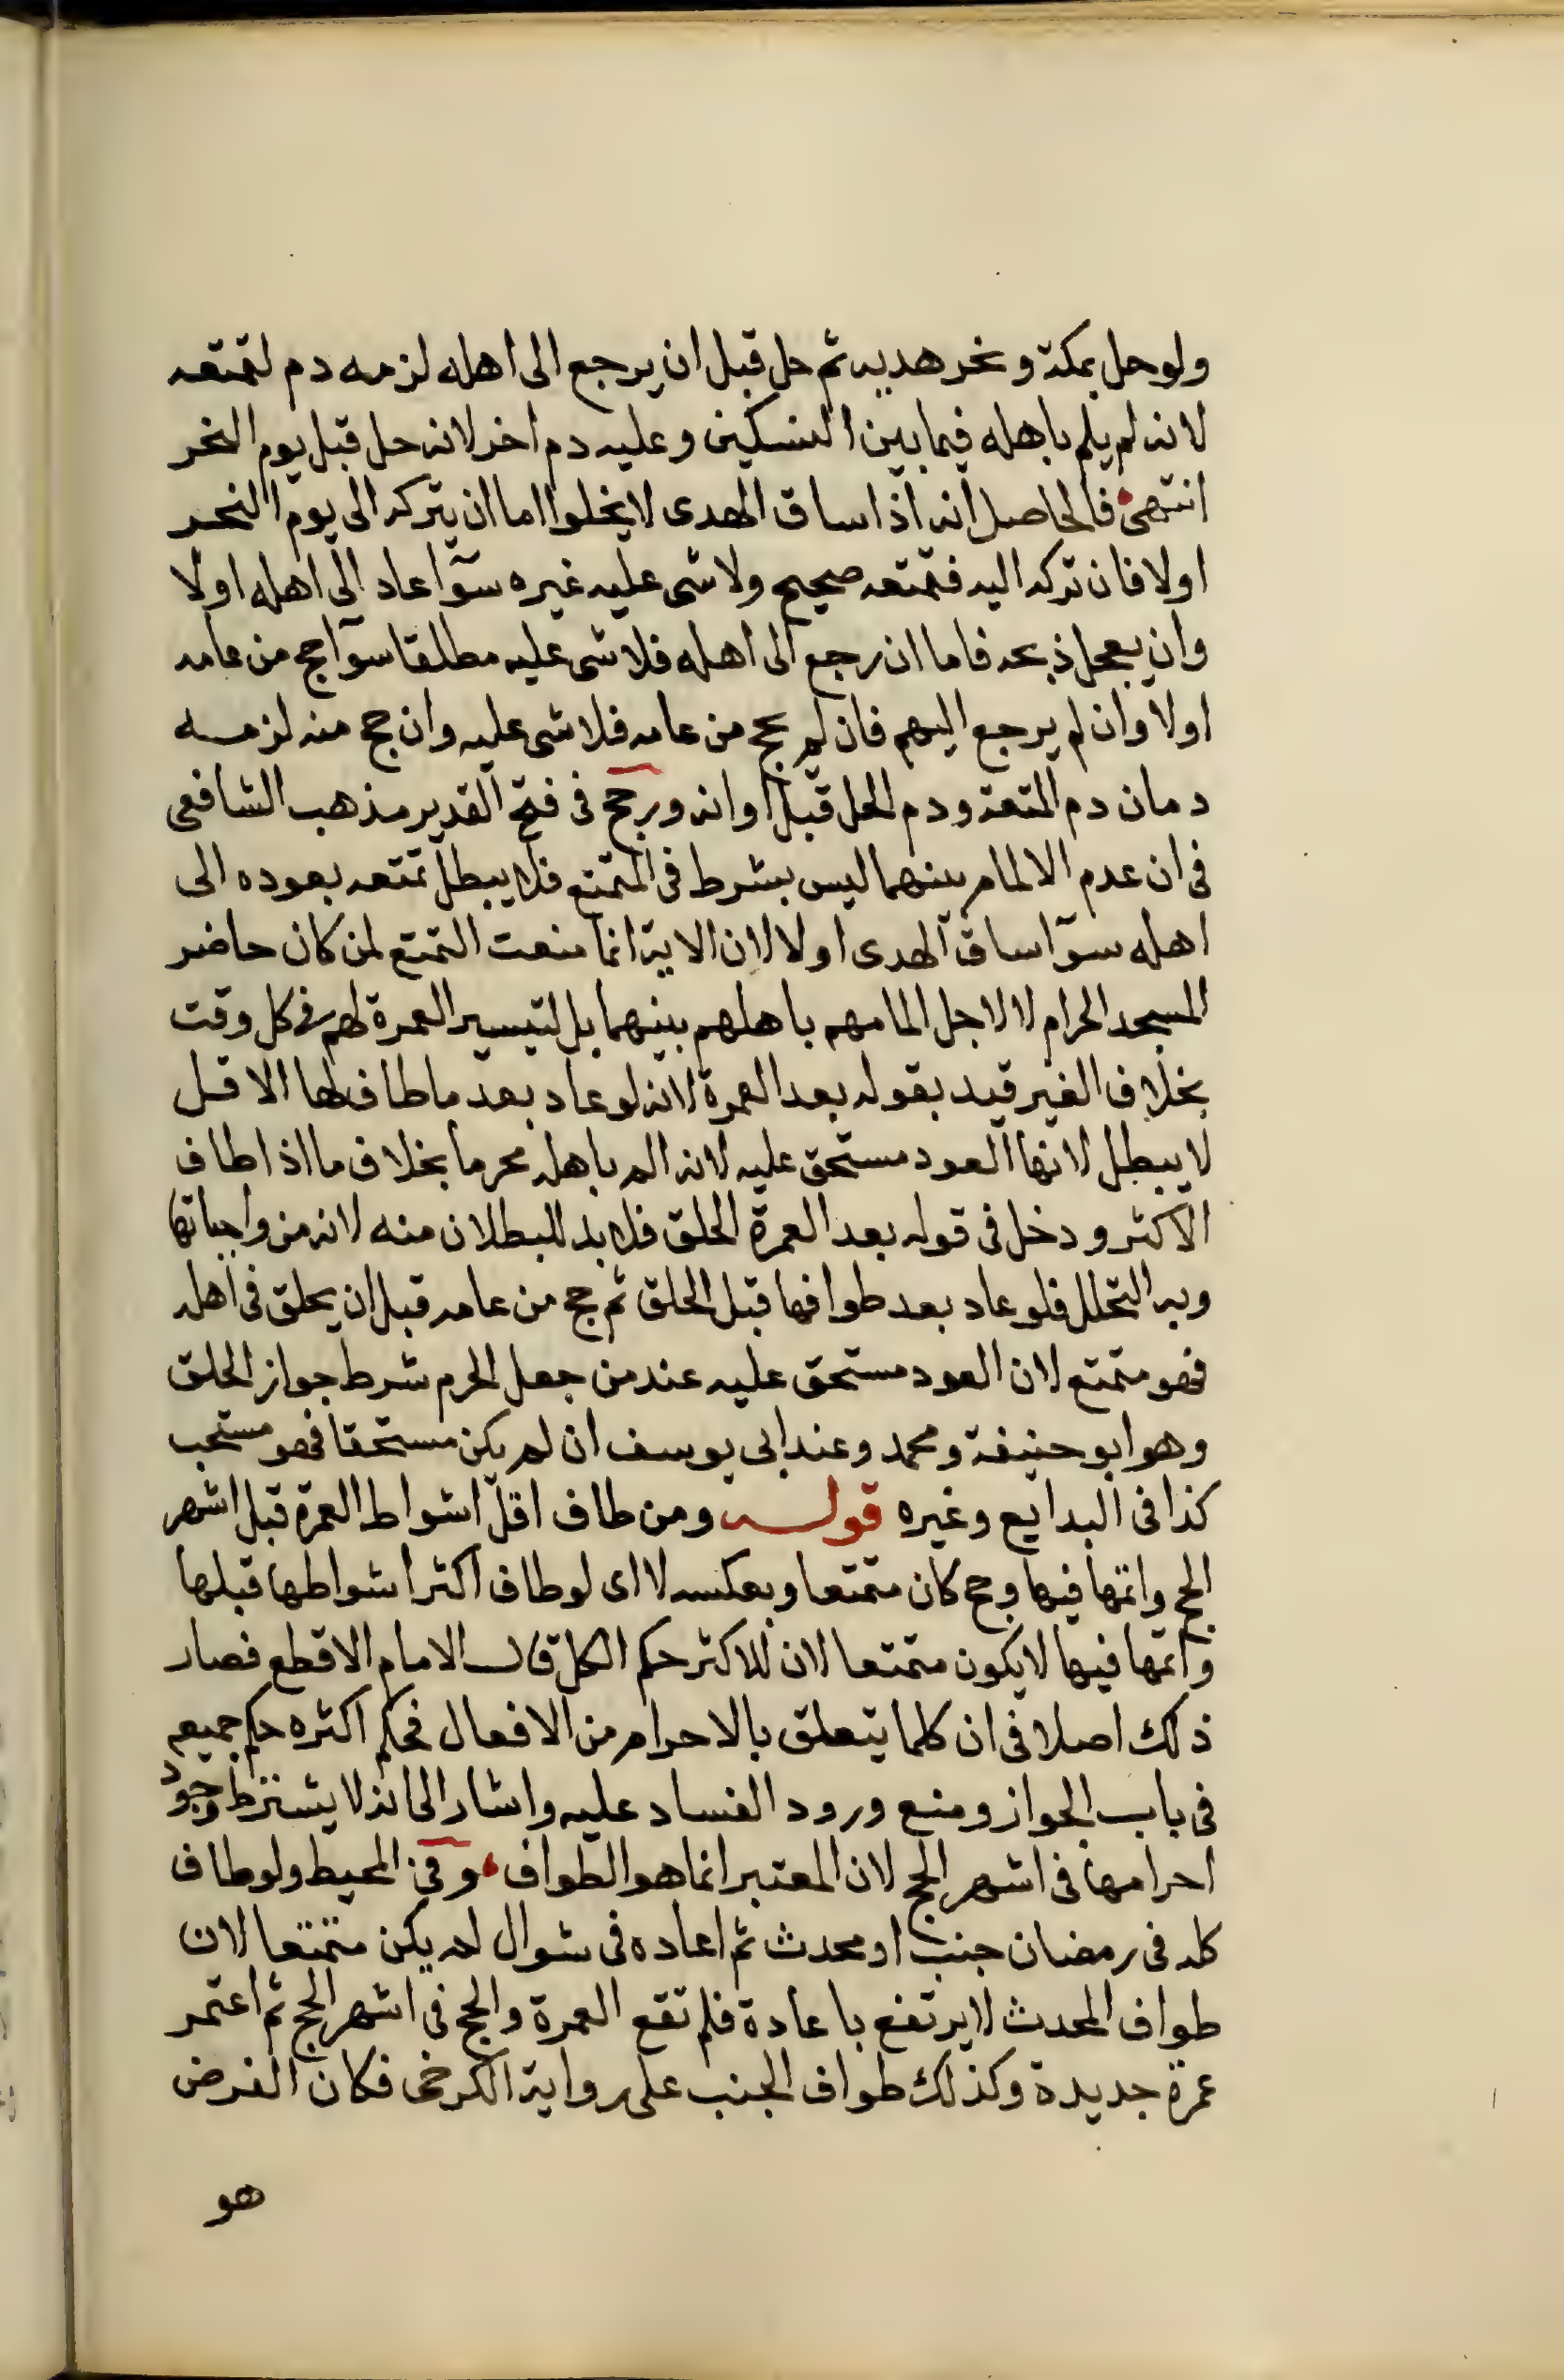 ولو حل بمكة ونحر هديه ثم حل قبل ان يرجع الى اهله لزمه دم لتمتعه
لانه لم يلم باهله فيما بين النسكين وعليه دم اخر لانه حل قبل يوم النحر
انتهى فالحاصل انه اذا ساق الهدى لا يخلوا اما ان يتركه الى يوم النحر
اولا فان تركه اليه فتمتعه صحيح ولا شى عليه غيره سوآ عاد الى اهله اولا
وان يعجل ذبحه فاما ان رجع الى اهله فلا شى عليه مطلقا سوآ حج من عامه
اولا وان لم يرجع اليهم فان لم يحج من عامه فلا شى عليه وان حج منه لزمه
دمان دم المتعة ودم الحل قبل اوانه ورجح فى فتح القدير مذهب الشافعى
فى ان عدم الالمام بينهما ليس بشرط فى التمتع فلا يبطل تمتعه بعوده الى
اهله سوآ ساق الهدى اولا لان الاية انما منعت التمتع لمن كان حاضر
المسجد الحرام لا لاجل المامهم باهلهم بينهما بل لتيسير العمرة لهم فى كل وقت
بخلاف الغير قيد بقوله بعد العمرة لانه لو عاد بعد ما طاف لها الاقل
لا يبطل لانها العود مستحق عليه لانه الم باهله محرما بخلاف ما اذا طاف
الاكثر ودخل فى قوله بعد العمرة الحلق فلا بد للبطلان منه لانه من واجباتها
وبه التحلل فلو عاد بعد طوافها قبل الحلق ثم حج من عامه قبل ان يحلق فى اهله
فهو متمتع لان العود مستحق عليه عند من جعل الحرم شرط جواز الحلق
وهو ابو حنيفة ومحمد وعند ابى يوسف ان لم يكن مستحقا فهو مستحب
كذا فى البدايع وغيره قوله ومن طاف اقل اشواط العمرة قبل اشهر
الحج واتمها فيها وحج كان متمتعا وبعكسه لا اى لو طاف اكثر اشواطها قبلها
واتمها فيها لا يكون متمتعا لان للاكثر حكم الكل قال الامام الاقطع فصار
ذلك اصلا فى ان كلما يتعلق بالاحرام من الافعال فحكم اكثره حكم جميعه
فى باب الجواز ومنع ورود الفساد عليه واشار الى انه لا يشترط وجود
احرامها فى اشهر الحج لان المعتبر انما هو الطواف وفى المحيط ولو طاف
كله فى رمضان جنب او محدث ثم اعاده فى شوال لم يكن متمتعا لان
طواف المحدث لا يرتفع باعادة فلم تقع العمرة والحج فى اشهر الحج ثم اعتمر
عمرة جديدة وكذلك طواف الجنب على رواية الكرخى فكان الفرض
هو